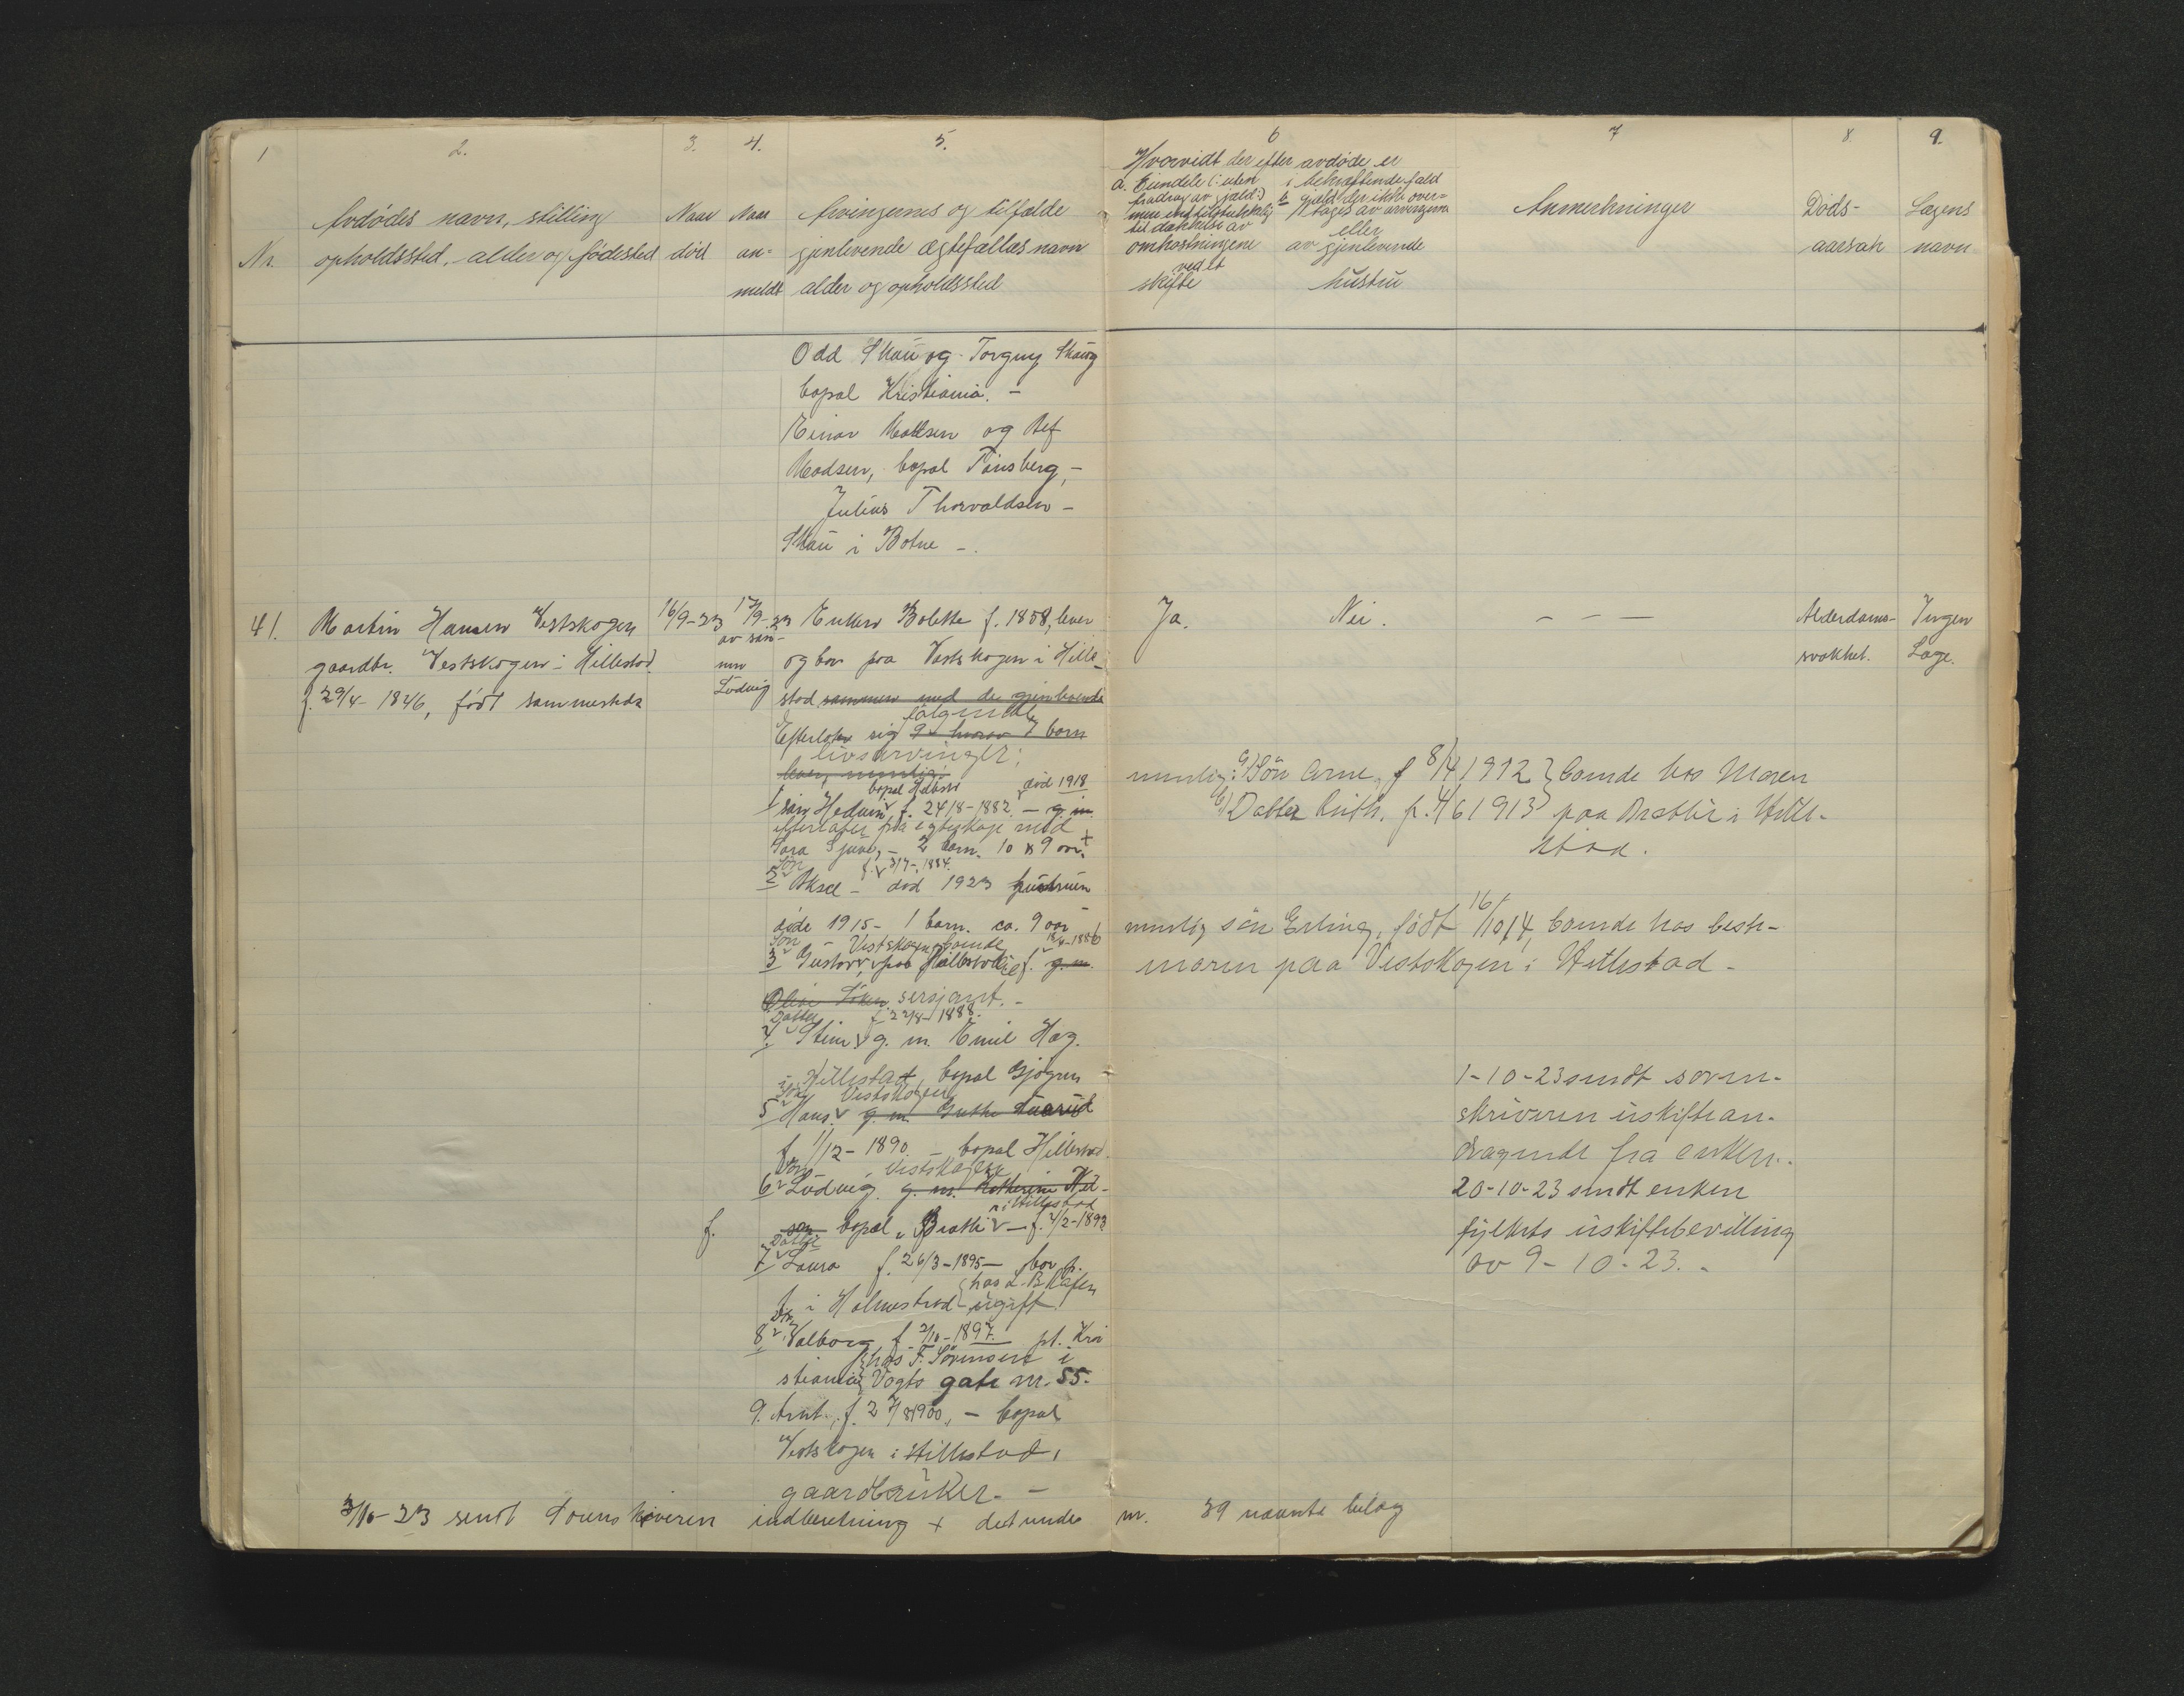 1 2. 3. 4. 5. 6 7 8. 9.
Nr.
Avdødes navn, stilling
opholdssted, alder og fødested
Naar
død
Naar
an-
meldt
Arvingernes og tilfælde
gjenlevende ægtefælles navn
alder og opholdssted
Hvorvidt der efter avdøde er
a. Eiendele (: uten
fradrag av gjæld :)
til dækkelse av
omkostningene
ved et
skifte
i bekræftende fald
b gjæld der ikke over-
tages av arvingerne
eller
av gjenlevende
hustru
Anmerkninger
Døds-
aarsak
Lægens
navn
Odd Skau og Torguy Skaug
bopal Kristiania. -
Einar Madsen og Alf
Madsen, bopal Tønsberg, -
Julius Thorvaldsen -
Skau i Botne -.
41.
Martin Hansen Vestskogen
gaardbr. Vestskogen i Hillestad.
f. 29/4 - 1846, født sammesteds
16/9-23
17/9-23
av søn-
nen
Ludvig
Enken Bolette f. 1858, lever
og bor paa Vestskogen i Hille-
stad sammen med de gjenboende
følgende
Efterlater sig 9 hvorav 7 barn
livsarvinger:
lever, nemlig:
bopal død 1918
1 søn Hedvin f. 24/8-1882. - g. m.
efterlater fra egteskap med
Sara - 2 barn. 10 & 9 aar. +
Søn f. 3/7-1884.
2 Aksel - død 1923 hustruen
døde 1915 - 1 barn. ca. 9 aar
Søn Vestskogen boende 18/4-1886
3 Gustav, paa Hillestad f. g. m.
sersjant. -
Datter f. 22/8-1888.
4. Stina g. m. Emil Hag.
i Hillestad, bopal Gjøgren
Søn Vestskogen
5 Hans. g. m. Grethe
f. 1/12 - 1890. - bopal Hillestad.
Søn Vestskogen
6 Ludvig g. m. Kathrine Nil-
i Hillestad
f. sen bopal "Bratli" - f. 4/2-1893
Datter
7 Laura f. 26/3-1895 - bor p.
hos L. B. Hafen
t. i Holmestrand - ugift
8. Valborg f. 2/10-1897. pt. Kri
hos F. Sørensen i
stiania Vogts gate nr. 55.
9. Arnt, f. 27/8 1900, - bopal
Vestskogen i Hillestad,
gaardbruker. -
Ja.
Nei.
- - -
Alderdoms-
svakhet.
Ingen
Læge.
nemlig: a) Søn Arne, f 8/4 1912 } boende hos Moren
b) Datter Ruth, f. 4/6 1913 paa Brattli i Hille-
stad.
nemlig søn Erling, født 16/10 14, boende hos beste-
moren paa Vestskogen i Hillestad -
1-10-23 sendt soren-
skriveren uskiftean-
dragende fra enken.
20-10-23 sendt enken
fylkets uskiftebevilling
av 9-10-23. -
3/10-23 sendt Sorenskriveren indberetning + det under nr. 39 nævnte bilag